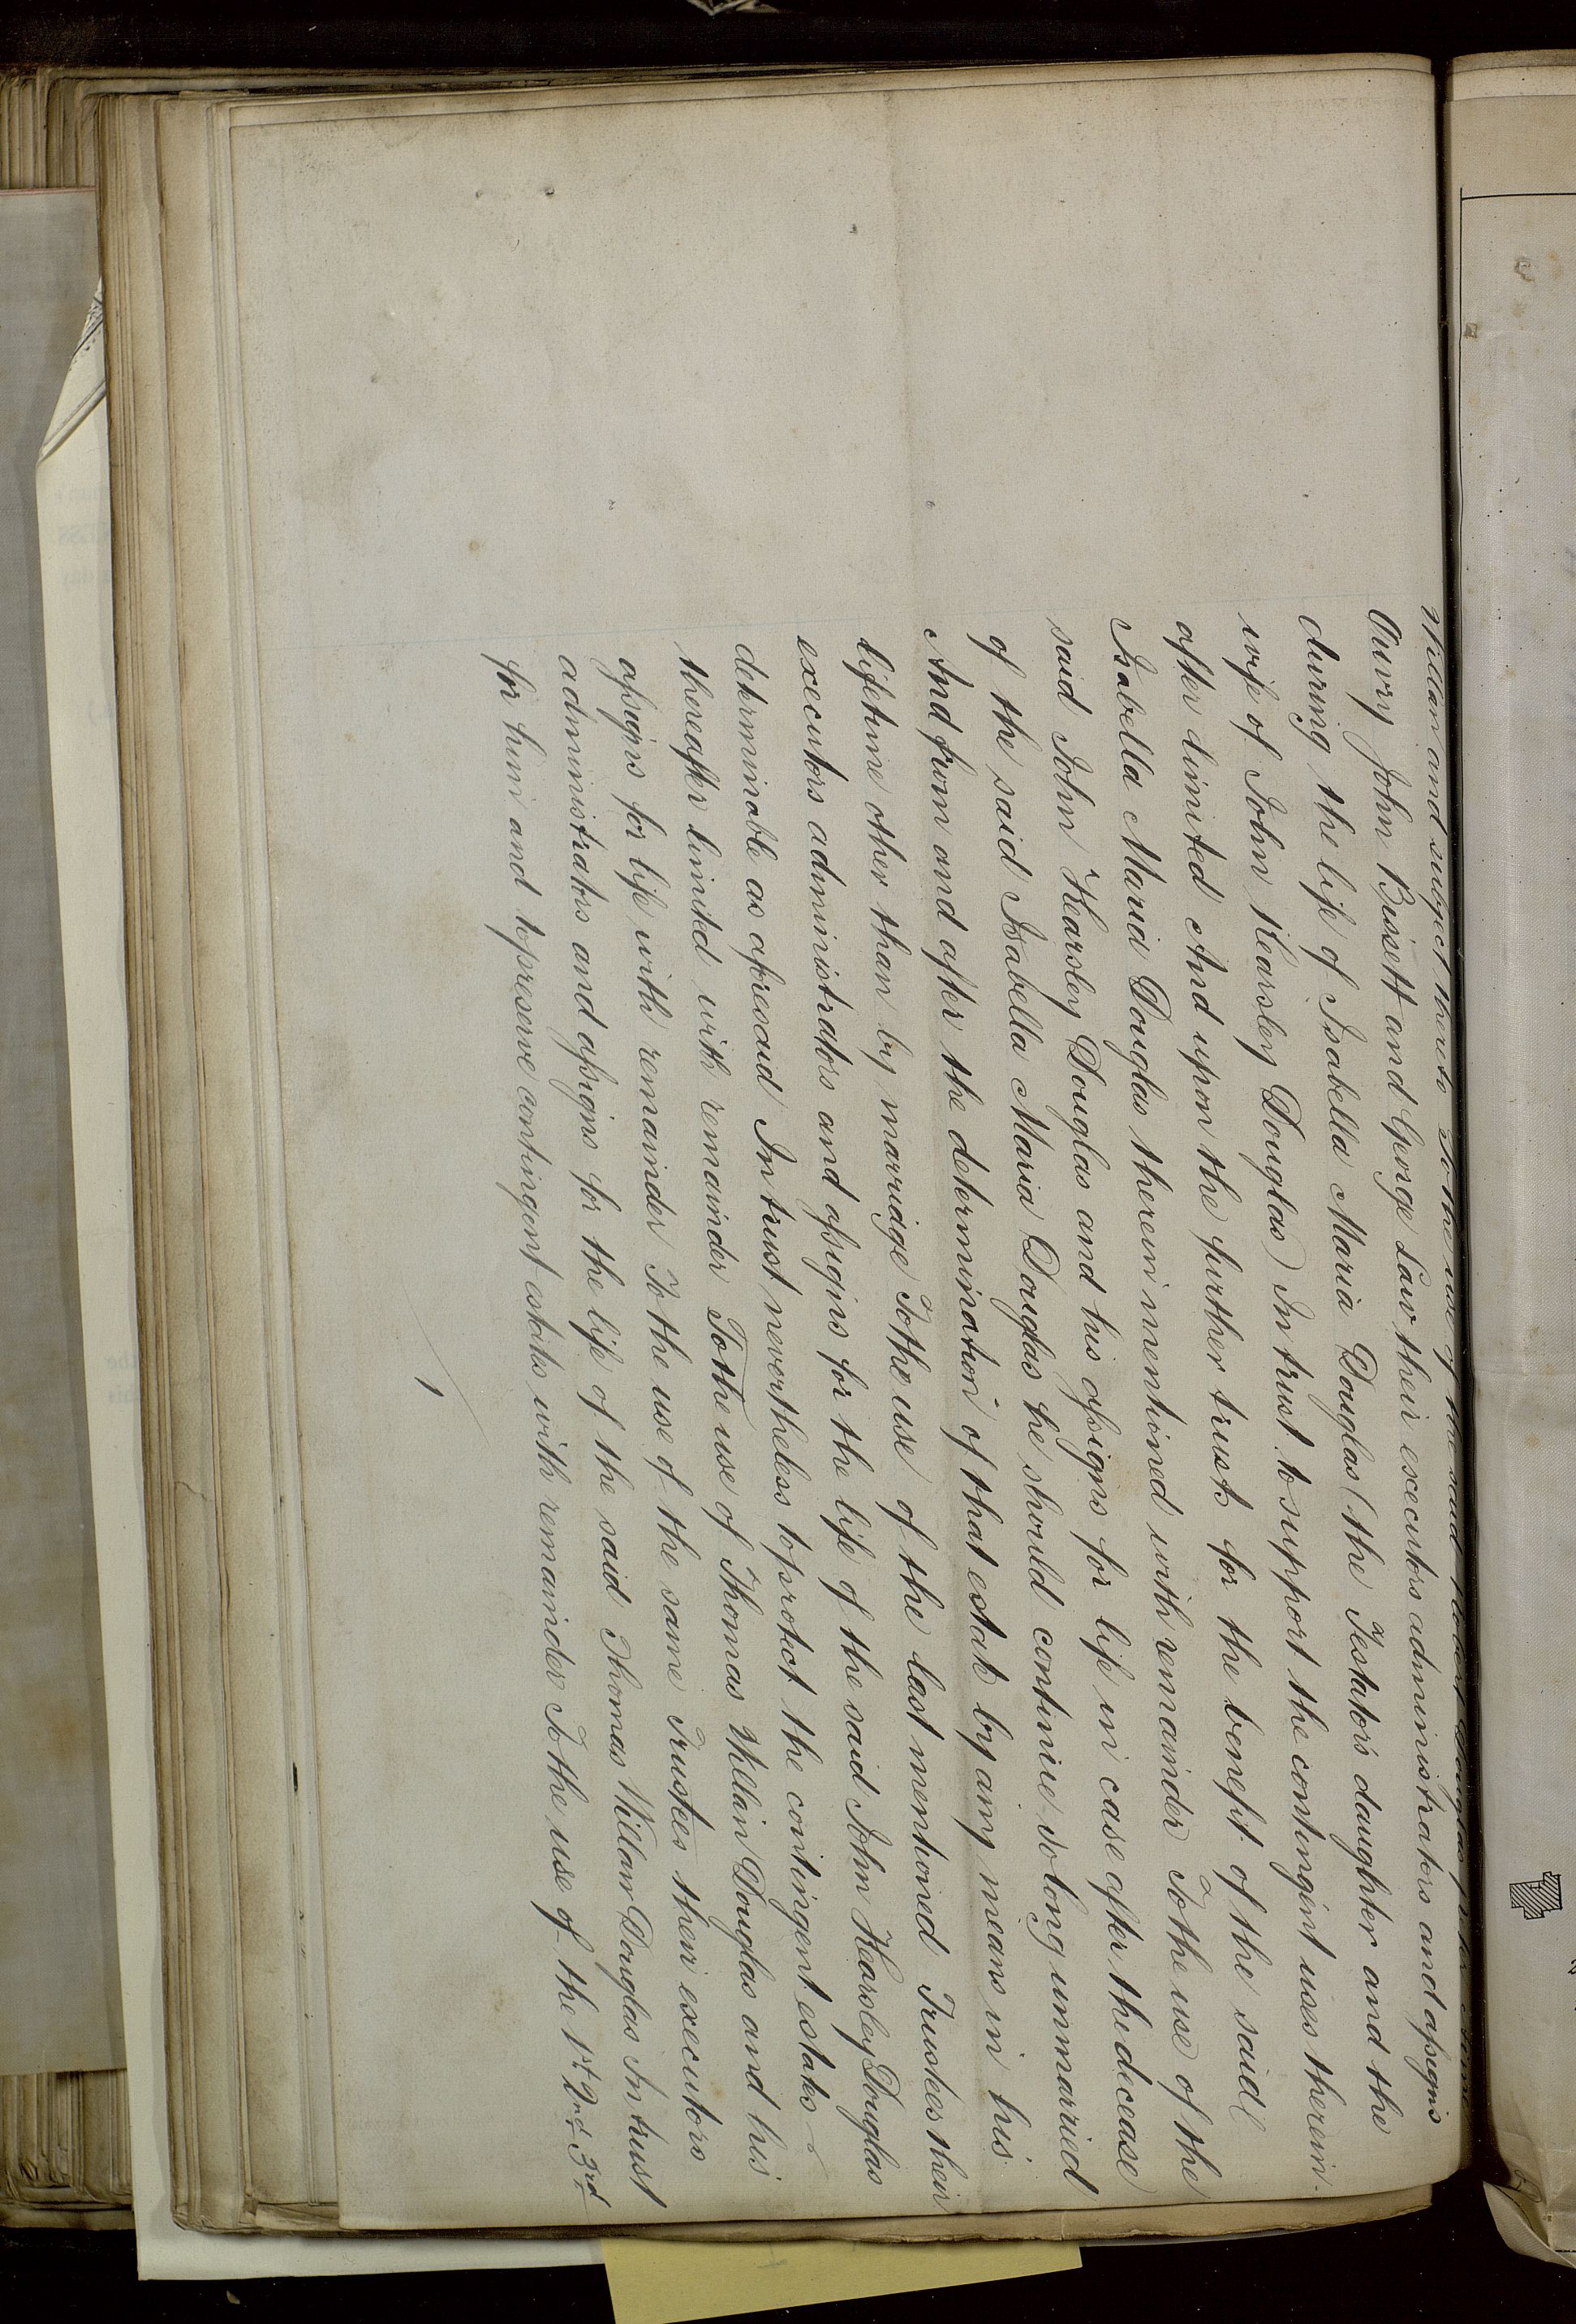 Willan and subject thereto To the use of the said Robert Douglas
Ouvry John Bissett and George Law their executors administrators and assigns
during the life of Isabella Maria Douglas (the Testators daughter and the
wife of John Kearsley Douglas) In trust to support the contingent uses therein
after limited And upon the further trusts for the benefit of the said
Isabella Maria Douglas therein mentioned with remainder To the use of the
said John Kearsley Douglas and his assigns for life in case after the decease
of the said Isabella Maria Douglas he should continue so long unmarried
And from and after the determination of that estate by any means in his
lifetime other than by marriage To the use of the last mentioned Trustees their
executors administrators and assigns for the life of the said John Kearsley Douglas
determinable as aforesaid In trust nevertheless to protect the contingent estates
thereafter limited with remainder To the use of Thomas Willan Douglas and his
assigns for life with remainder To the use of the same Trustees their executors
administrators and assigns for the life of the said Thomas Willan Douglas In trust
for him and to preserve contingent estates with remainder To the use of the 1st 2nd 3rd